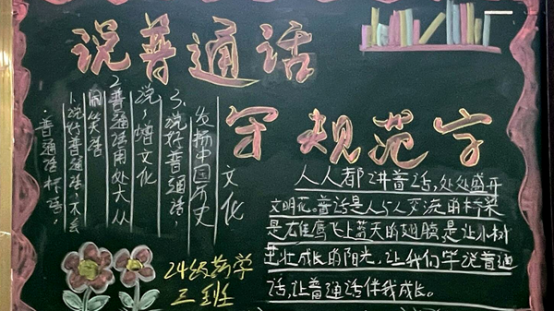 说普通话
写规范字
普通话标语:
1.说好普通话,不会
闹笑话
2.普通话用处大,从
说,增文化
3.说好普通话,
发扬中国历史
文化
人人都讲普话,处处盛开
文明花。普话是人与人交流的桥梁
是雄鹰飞上蓝天的翅膀,是让小树
茁壮成长的阳光,让我们学说普通
话,让普通话伴我成长。
24级药学
三班